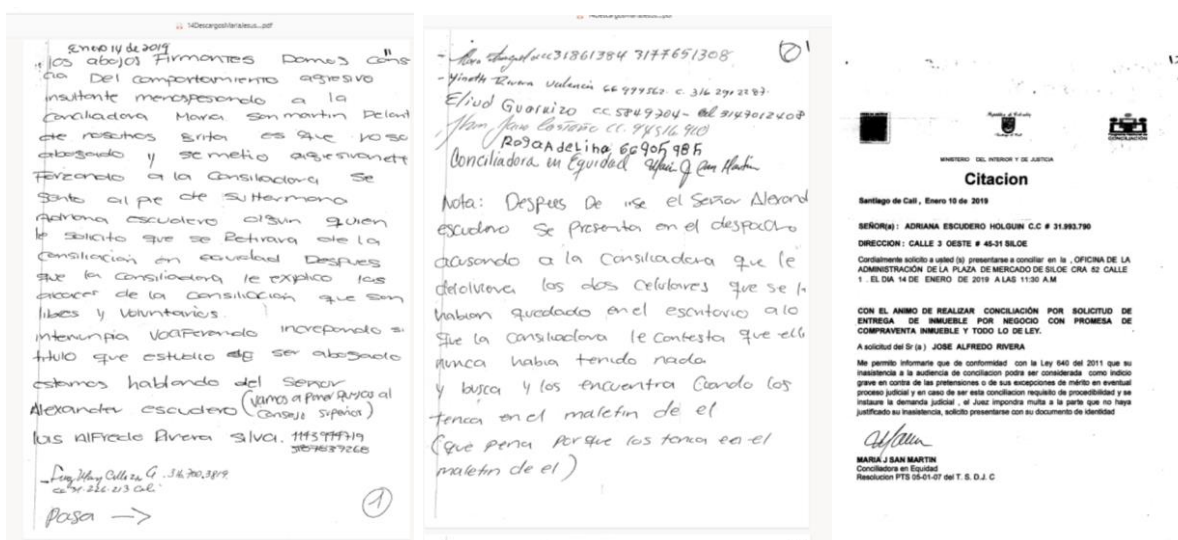 14DescargosMariaJesus...pdf
Enero 14 de 2019
los abajos Firmantes Damos cons
cia Del comportamiento agresivo
insultante menospesando a la
Conciliadora Maria San martin Delant
de nosotros grita es que yo so
abogado y se metio agresivanete
Forzando a la Consiliadora se
Sento al pie de su Hermana
Adriana escudero olgun quien
le solicito que se Retirava de la
Consiliacion en equidad Despues
que la Consiliadora le explico las
de la Consiliacion que son
libres y Voluntarios.
interunpia VociFerando increpando s
titulo que estudio de ser abogado
estamos hablando del señor
Alexander escudero (vamos a poner quejas al
Consejo Superior)
luis AlFredo Rivera Silva. 1143977719
3187637268
316.700.3819.
cc 31.226.213 Cali
Pasa →
1
14DescargosMariaJesus...pdf
cc 31861384 3177651308
- Yineth Rivera Valencia 66 999562. c. 316 2902287.
Eliud Guarnizo cc 5849704 - cel 3147012408
cc. 94516910
Rosa Adelina 66905985
Conciliadora en Equidad Maria J San Martin
Nota: Despues De irse el Señor Alexand
escudero Se Presenta en el despacho
acusando a la Consiliadora que le
devolviera los dos celulares que se l
habian quedado en el escritorio a lo
que la Consiliadora le Contesta que ella
nunca habia tenido nada
y busca y los encuentra Cuando los
tenia en el maletin de el
(que pena porque los tenia en el
maletin de el)
República de Colombia
CONCILIACIÓN
MINISTERIO DEL INTERIOR Y DE JUSTICIA
Citacion
Santiago de Cali , Enero 10 de 2019
SEÑOR(a) : ADRIANA ESCUDERO HOLGUIN C.C # 31.993.790
DIRECCION : CALLE 3 OESTE # 45-31 SILOE
Cordialmente solicito a usted (s) presentarse a conciliar en la , OFICINA DE LA
ADMINISTRACIÓN DE LA PLAZA DE MERCADO DE SILOE CRA 52 CALLE
1 . EL DIA 14 DE ENERO DE 2019 A LAS 11:30 A.M
CON EL ANIMO DE REALIZAR CONCILIACIÓN POR SOLICITUD DE
ENTREGA DE INMUEBLE POR NEGOCIO CON PROMESA DE
COMPRAVENTA INMUEBLE Y TODO LO DE LEY.
A solicitud del Sr (a ) JOSE ALFREDO RIVERA
Me permito informarle que de conformidad con la Ley 640 del 2011 que su
inasistencia a la audiencia de conciliacion podra ser considerada como indicio
grave en contra de las pretensiones o de sus excepciones de mérito en eventual
proceso judicial y en caso de ser esta conciliacion requisito de procedibilidad y se
instaure la demanda judicial , el Juez impondra multa a la parte que no haya
justificado su inasistencia, solicito presentarse con su documento de identidad
MARIA J SAN MARTIN
Conciliadora en Equidad
Resolucion PTS 05-01-07 del T. S. D.J. C